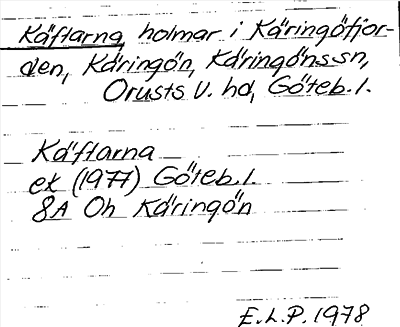 Käftarna, holmar i Käringöfjor-
den, Käringön, Käringöns sn,
Orusts V. hd, Göteb. l.
Käftarna
ek (1977) Göteb. l.
8A Oh Käringön
E.L.P. 1978